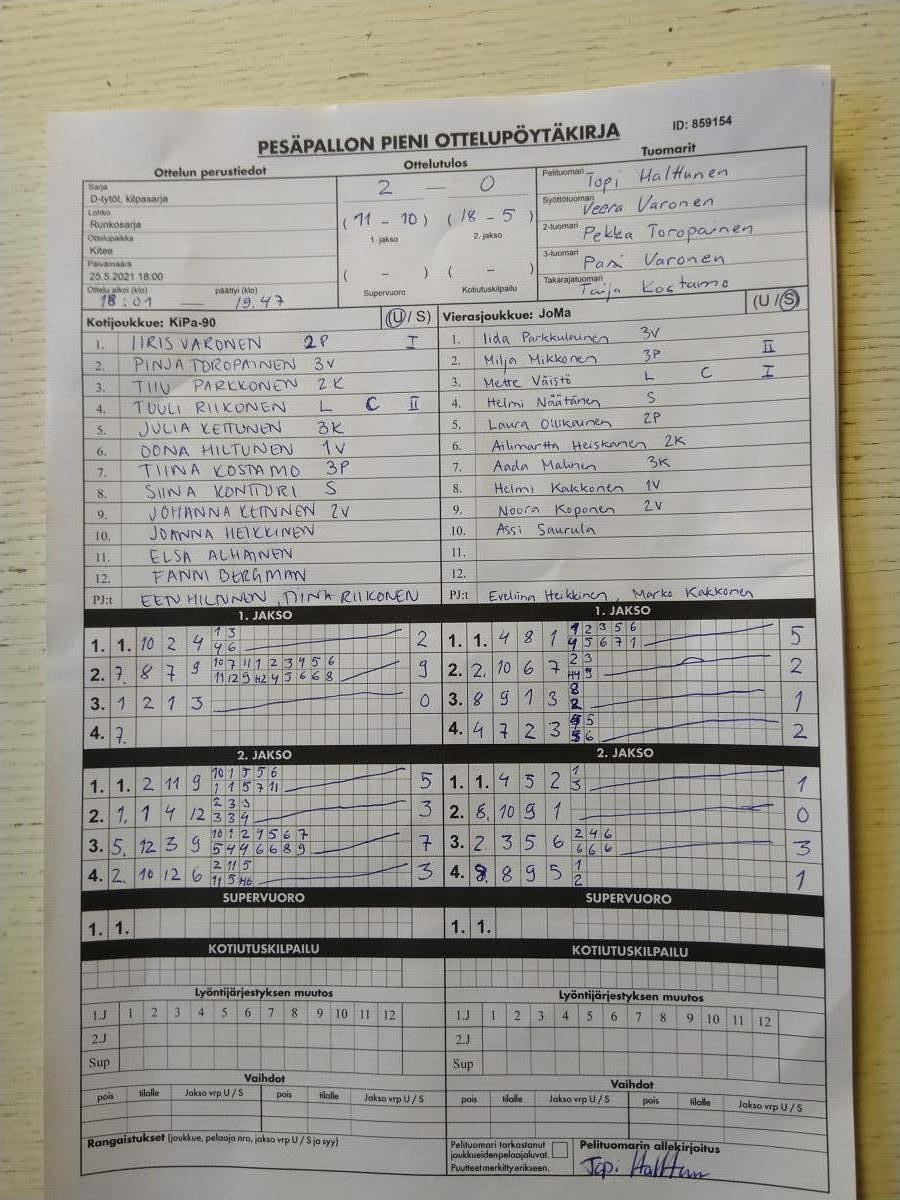 PESÄPALLON PIENI OTTELUPÖYTÄKIRJA
ID: 859154
Ottelun perustiedot
Ottelutulos
Tuomarit
Sarja
D-tytöt, kilpasarja
Lohko
Runkosarja
Ottelupaikka
Kitee
Päivämäärä
25.5.2021 18:00
Ottelu alkoi (klo) päättyi (klo)
18:01 — 19.47
2 — 0
(11 - 10) (18 - 5)
1. jakso 2. jakso
( - ) ( - )
Supervuoro Kotiutuskilpailu
Pelituomari Topi Halttunen
Syöttötuomari Veera Varonen
2-tuomari Pekka Toropainen
3-tuomari Pasi Varonen
Takarajatuomari Taija Kostamo
Kotijoukkue: KiPa-90 (U / S)
1. IIRIS VARONEN 2P I
2. PINJA TOROPAINEN 3V
3. TIIU PARKKONEN 2K
4. TUULI RIIKONEN L C II
5. JULIA KETTUNEN 3K
6. OONA HILTUNEN 1V
7. TIINA KOSTAMO 3P
8. SIINA KONTTURI S
9. JOHANNA KEINNEN 2V
10. JOANNA HEIKKINEN
11. ELSA ALHAINEN
12. FANNI BERGMAN
PJ:t TIINA RIIKONEN
Vierasjoukkue: JoMa (U / S)
1. Iida Parkkulainen 3V
2. Milja Mikkonen 3P II
3. Mette Väistö L C I
4. Helmi Näätänen S
5. Laura Ollikainen 2P
6. Ailimartta Heiskanen 2K
7. Aada Malinen 3K
8. Helmi Kakkonen 1V
9. Noora Koponen 2V
10. Assi Saurula
11.
12.
PJ:t Eveliina Heikkinen, Marko Kakkonen
1. JAKSO
1. 1. 10 2 4 1 3 2
4 6
2. 7. 8 7 9 10 7 11 1 2 3 4 5 6 9
11 12 9 H2 4 5 6 6 8
3. 1 2 1 3 0
4. 7.
1. JAKSO
1. 1. 4 8 1 1 2 3 5 6 5
4 5 6 7 1
2. 2. 10 6 7 2 3 2
H4 5
3. 8 9 1 3 8 1
2
4. 4 7 2 3 4 5 2
5 6
2. JAKSO
1. 1. 2 11 9 10 1 5 5 6 5
1 1 5 7 11
2. 1. 1 4 12 2 3 3 3
3 3 4
3. 5. 12 3 9 10 1 2 4 5 6 7 7
5 4 4 6 6 8 9
4. 2. 10 12 6 2 11 5 3
11 5 H6
2. JAKSO
1. 1. 4 5 2 1 1
3
2. 8. 10 9 1 0
3. 2 3 5 6 2 4 6 3
6 6 6
4. 8. 8 9 5 1 1
2
SUPERVUORO
1. 1.
SUPERVUORO
1. 1.
KOTIUTUSKILPAILU
KOTIUTUSKILPAILU
Lyöntijärjestyksen muutos
1.J 1 2 3 4 5 6 7 8 9 10 11 12
2.J
Sup
Lyöntijärjestyksen muutos
1.J 1 2 3 4 5 6 7 8 9 10 11 12
2.J
Sup
Vaihdot
pois tilalle Jakso vrp U / S pois tilalle Jakso vrp U / S
Vaihdot
pois tilalle Jakso vrp U / S pois tilalle Jakso vrp U / S
Rangaistukset (joukkue, pelaaja nro, jakso vrp U / S ja syy)
Pelituomari tarkastanut
joukkueidenpelaajaluvat.
Puutteet merkitty erikseen.
Pelituomarin allekirjoitus
Topi Halttunen